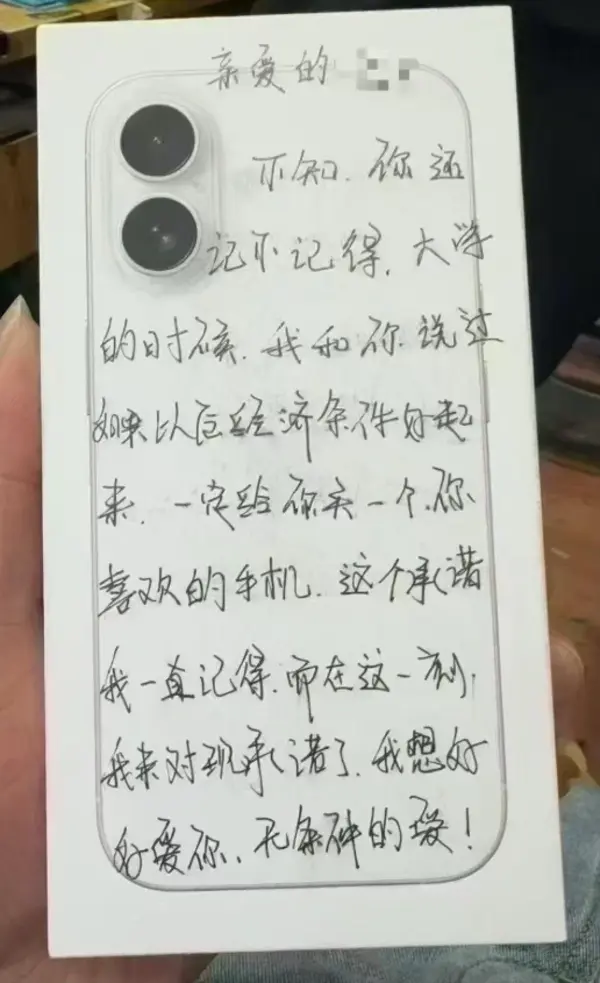 亲爱的
不知,你还
记不记得,大学
的时候,我和你说过
如果以后经济条件好起
来,一定给你买一个,你
喜欢的手机,这个承诺
我一直记得,而在这一刻,
我来对现承诺了,我想好
好爱你、无条件的爱!